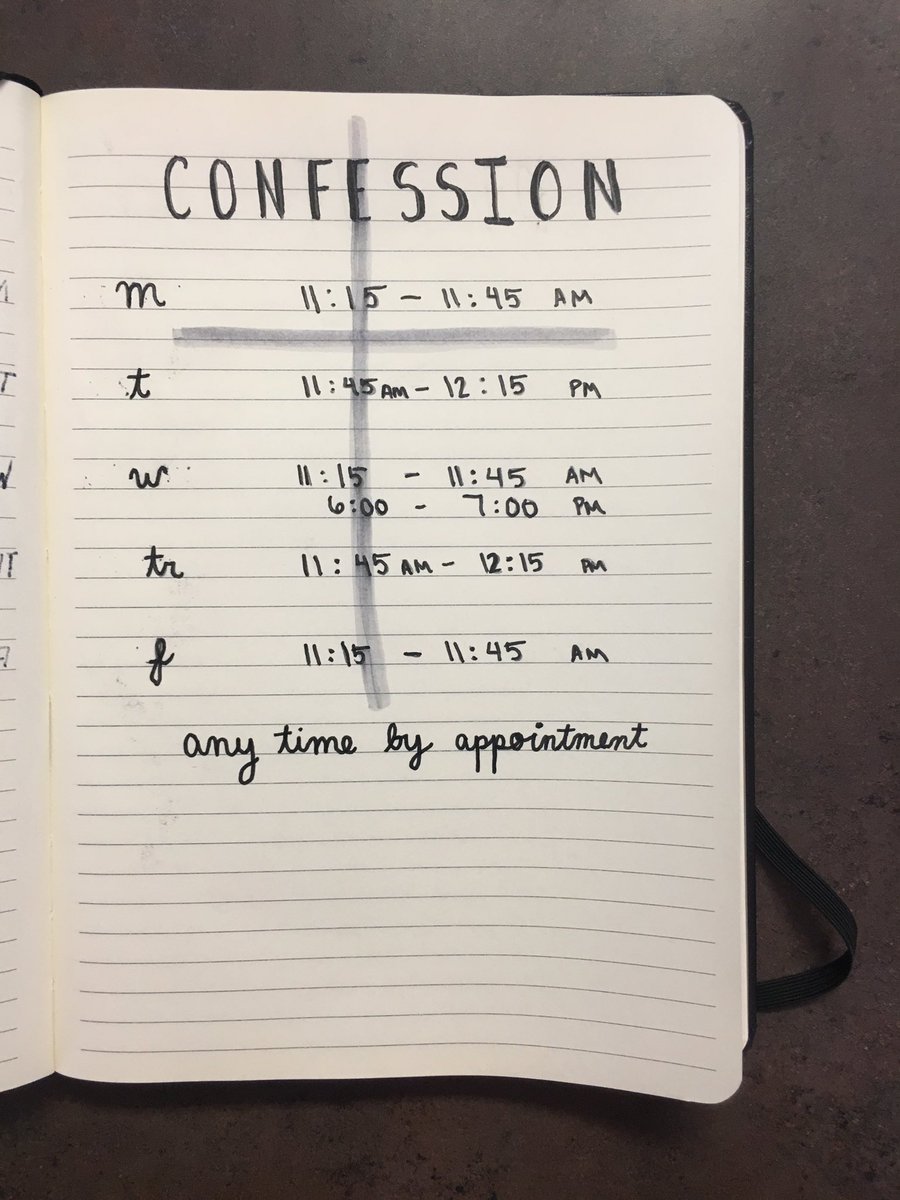 CONFESSION
m 11:15 - 11:45 AM
t 11:45 AM - 12:15 PM
w 11:15 - 11:45 AM
6:00 - 7:00 PM
tr 11:45 AM - 12:15 PM
f 11:15 - 11:45 AM
any time by appointment